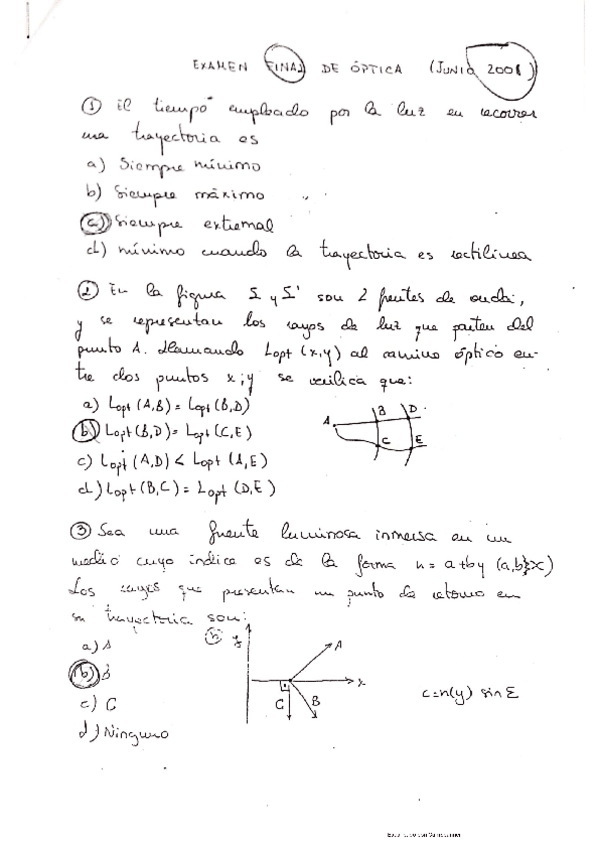 EXAMEN FINAL DE ÓPTICA (JUNIO 2001)
① El tiempo empleado por la luz en recorrer
una trayectoria es
a) Siempre mínimo
b) Siempre máximo
c) Siempre extremal
d) mínimo cuando la trayectoria es rectilínea
② En la figura Σ y Σ' son 2 frentes de onda,
y se representan los rayos de luz que parten del
punto A. Llamando Lopt (x,y) al camino óptico en-
tre dos puntos x, y se verifica que:
a) Lopt (A,B) = Lopt (B,D)
b) Lopt (B,D) = Lopt (C,E)
c) Lopt (A,D) < Lopt (A,E)
d) Lopt (B,C) = Lopt (D,E)
A B D
C E
③ Sea una fuente luminosa inmersa en un
medio cuyo índice es de la forma n = a+by
Los rayos que presentan un punto de retorno en
su trayectoria son:
a) A
b) B
c) C
d) Ninguno
n y A
x
C B
c=n(y) sin ε